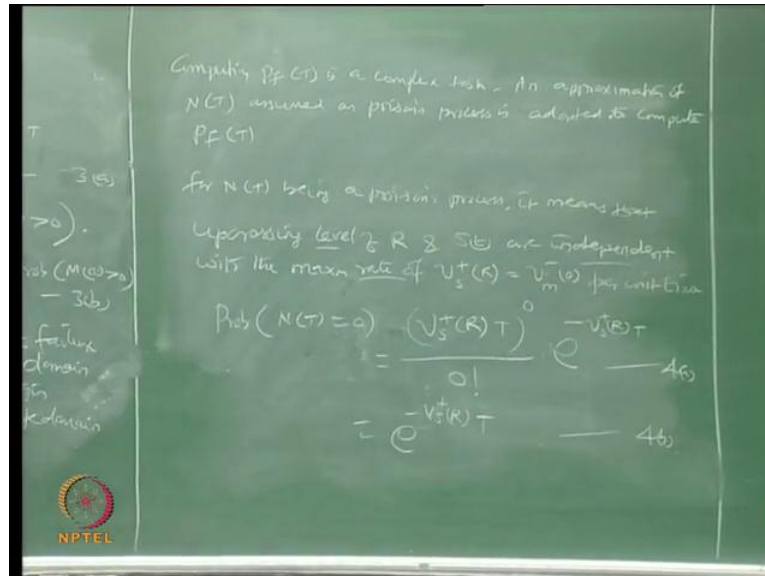 T
— 3(a)
>0).
Prob (M(0)>0)
— 3(b)
failure
domain
domain
Computing Pf (T) is a complex task. An approximation of
N(T) assumed as poison's process is adopted to compute
Pf (T)
for N(T) being a poison's process, it means that
upcrossing level of R & S(t) are independent
with the maxm rate of νs⁺(R) = νm⁻(0) per unit time
Prob ( N(T) = 0) = (νs⁺(R) T)⁰ / 0! · e^(-νs⁺(R) T) — 4(a)
= e^(-νs⁺(R) T) — 4(b)
NPTEL